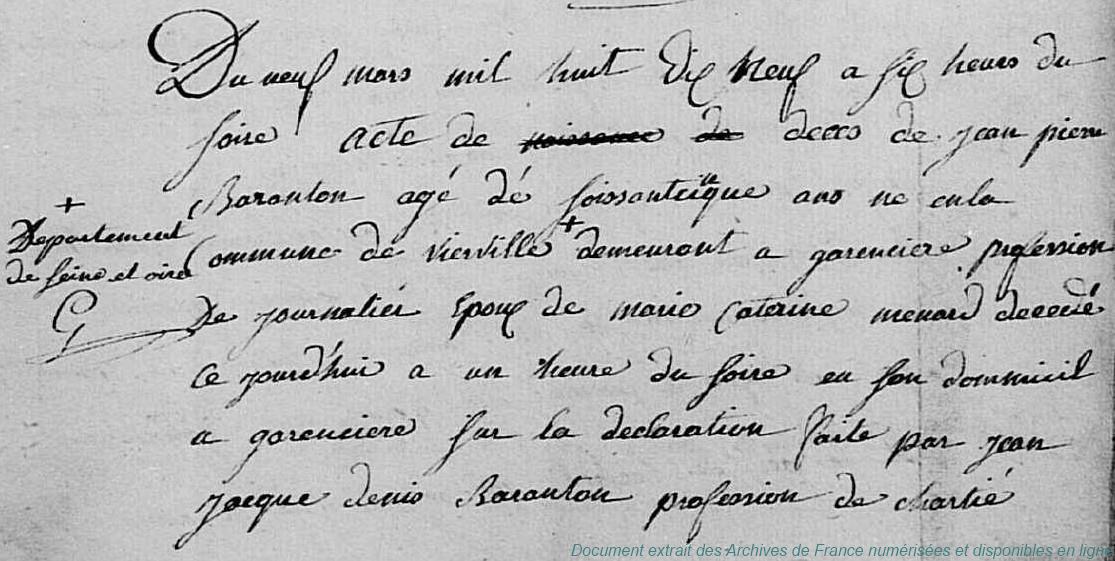 Du neuf mars mil huit dix neuf a six heures du
soire acte de naissance de deces de jean pierre
Baranton agé dé soissanteciqne ans ne en la
+
Departement
de seine et oise
Commune de vierville + demeurant a garenciere profession
De journalier Epoux de marie Caterine menard decedé
ce jourd'hui a un heure du soire en son dommicil
a garenciere sur la déclaration faite par jean
jacque denis Baranton profession de chartié
Document extrait des Archives de France numérisées et disponibles en ligne